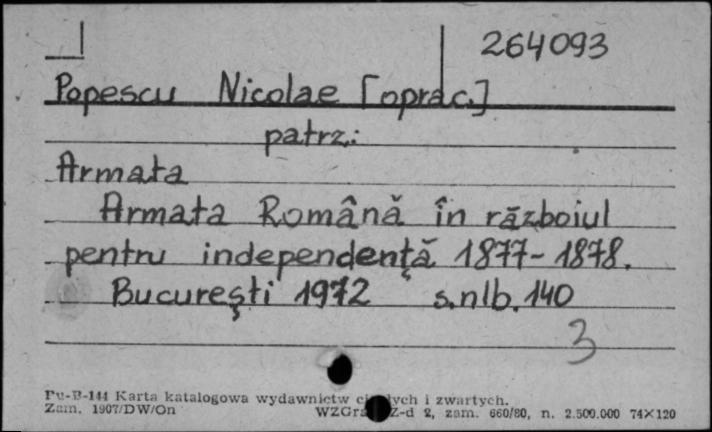 264093
Popescu Nicolae [oprac.]
patrz:
Armata
Armata Română în războiul
pentru independenţă 1877-1878.
Bucureşti 1972 s.nlb. 140
3
Pu-B-144 Karta katalogowa wydawnictw i zwartych.
Zam. 1907/DW/Gn Z-d 2, zam. 660/80, n. 2.500.000 74×120